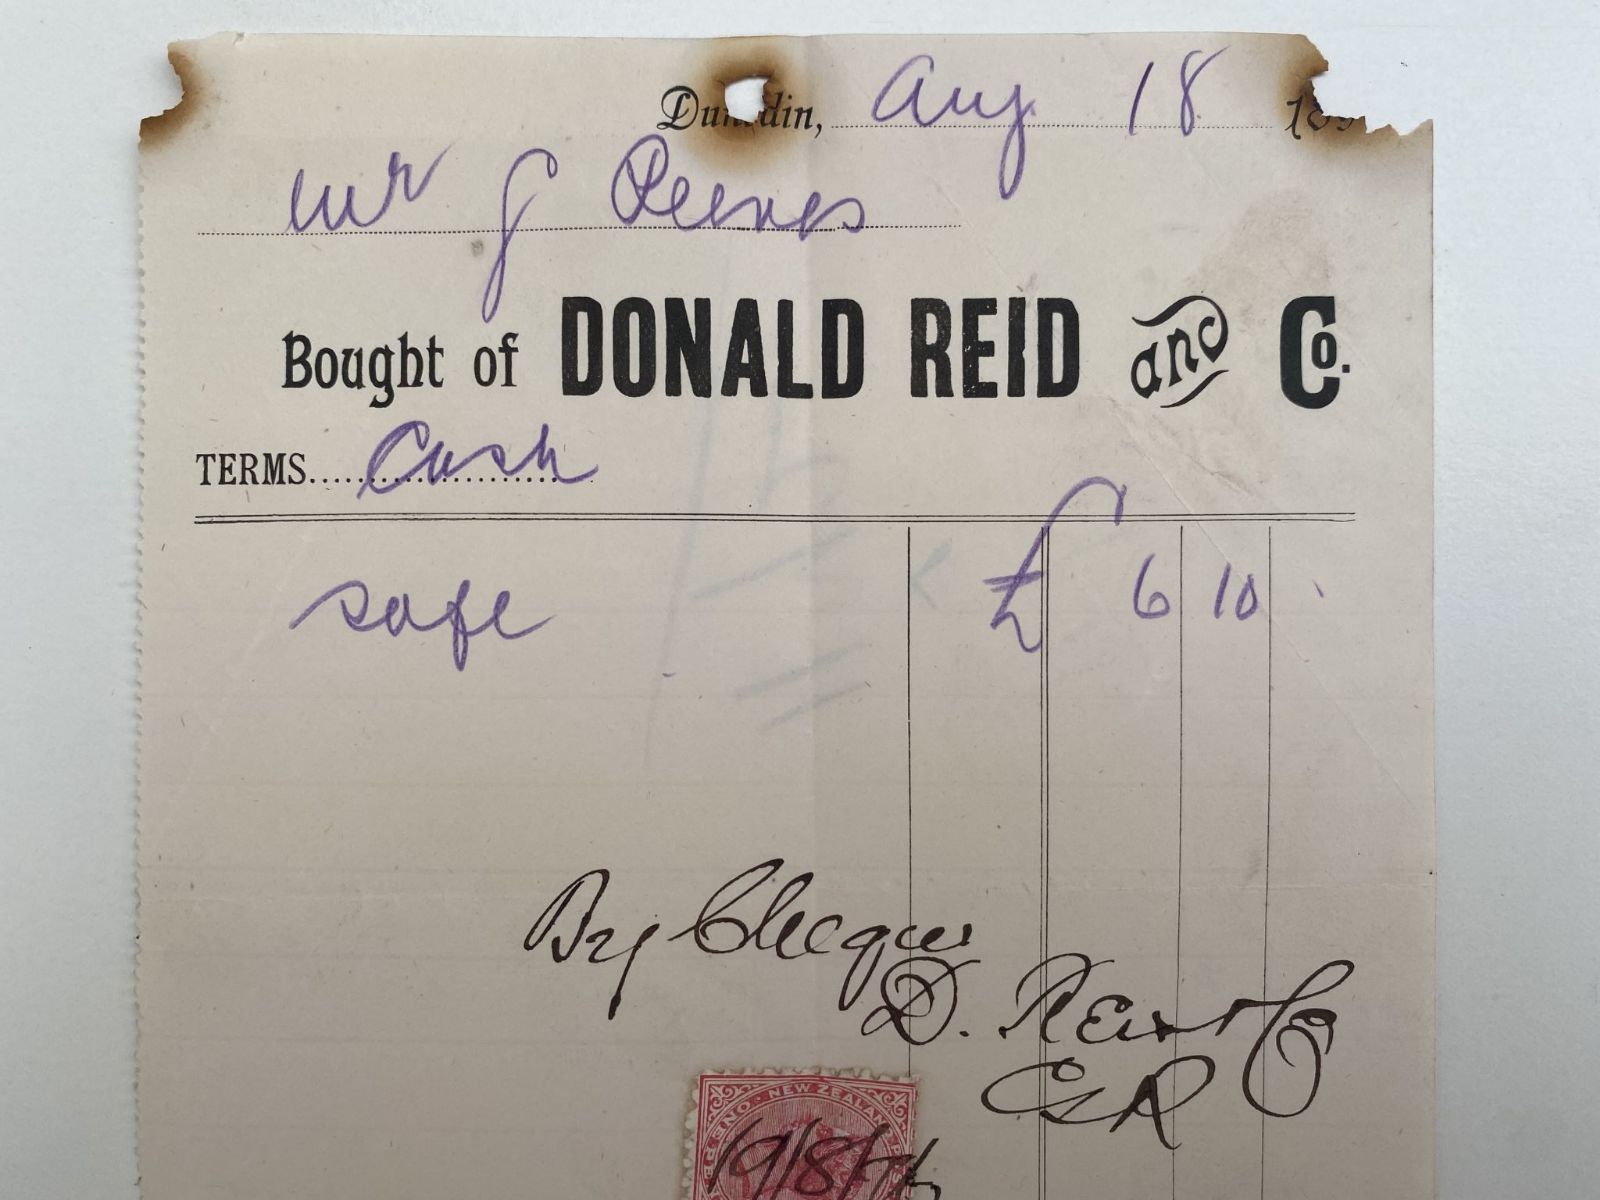 Dunedin, Aug 18
Mr J Reeves
Bought of DONALD REID and Co.
TERMS.... Cash
safe £ 6 10
By Cheque
D. Reid & Co
NEW ZEALAND
19/8/